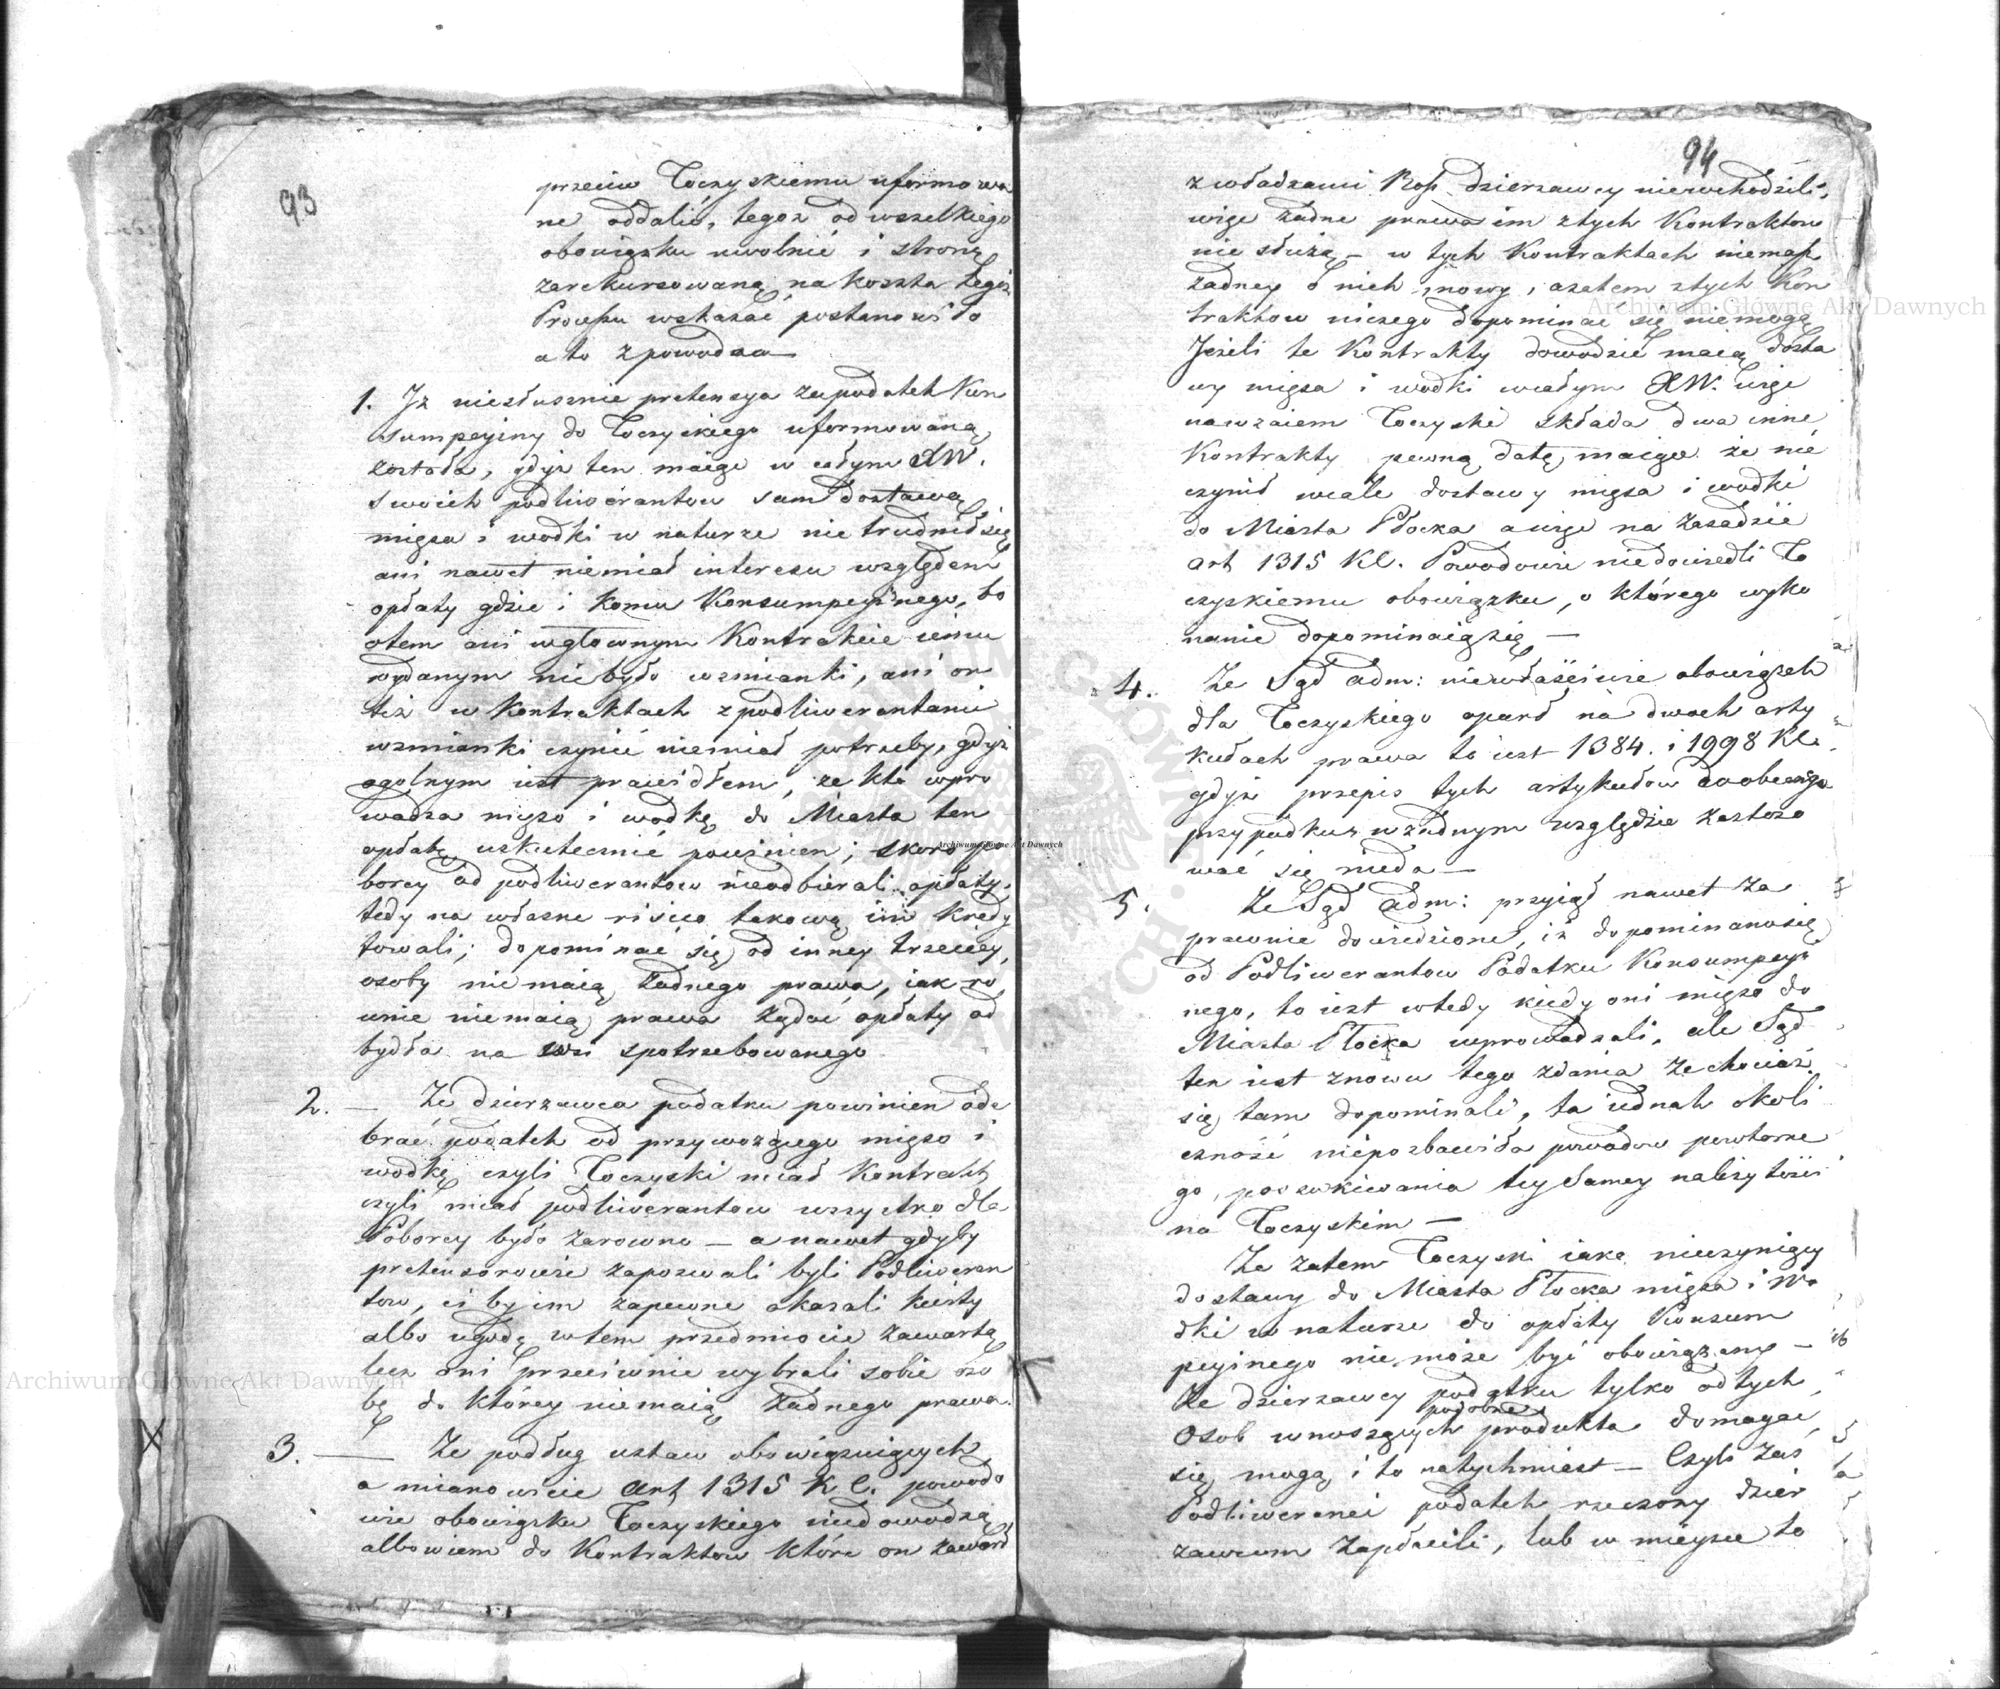 93
przeciw Toczyskiemu uformowa
ne oddalić, tegoż od wszelkiego
obowiązku uwolnić i stronę
zarekursowaną na koszta tegoż
Processu wskazać postanowiło
a to z powodów
1. Iż niesłusznie pretensya za podatek Kon
sumpcyiny do Toczyskiego uformowaną
została, gdyż ten maiąc w całym XW.
swoich podliwerantow sam dostawą
mięsa i wodki w naturze nie trudnił się
ani nawet niemiał interesu względem
opłaty gdzie i komu Konsumpcyinego, bo
otem ani wgłownym Kontrakcie iemu
wydanym niebyło wzmianki, ani on
też w Kontraktach z podliwerantami
wzmianki czynić niemiał potrzeby, gdyż
ogolnym iest prawidłem, że kto wpro
wadza mięso i wodkę do Miasta ten
opłatę uskutecznić powinien; skoro po
borcy od podliwerantow nieodbierali opłaty,
tedy na własne risico takową im kredy
towali; dopominać się od inney trzeciey
osoby nie maią żadnego prawa, iak ro
wnie niemaią prawa żądać opłaty od
bydła na wsi spotrzebowanego
2. — Że dzierzawca podatku powinien ode
brać podatek od przywożącego mięso i
wodkę czyli Toczyski miał Kontrakt
czyli miał podliwerantow wszystko dla
Poborcy było zarowno — a nawet gdyby
pretensorowie zapozwali byli Podliweran
tow, ci by im zapewne okazali kwity
albo ugodę wtem przedmiocie zawartą
lecz oni przeciwnie wybrali sobie oso
bę do którey niemaią żadnego prawa.
3. — Że podług ustaw obowiązuiących
a mianowicie Art 1315 K C. powodo
wie obowiązku Toczyskiego niedowodzą
albowiem do Kontraktow które on zawarł
94
z władzami Ross. dzierzawcy niewchodzili,
więc żadne prawa im ztych Kontraktow
nie służą — w tych Kontraktach niemasz
żadney o nich mowy, azatem ztych Kon
traktow niczego dopominać się niemogą
Jeżeli te Kontrakty dowodzić maią dosta
wy mięsa i wodki wcałym XW. więc
nawzaiem Toczyski składa dwa inne
Kontrakty pewną datę maiące że nie
czynił wcale dostawy mięsa i wodki
do Miasta Płocka a więc na zasadzie
art 1315 KC. Powodowie niedowiedli To
czyskiemu obowiązku, o którego wyko
nanie dopominaią się —
4. Że Sąd adm: niewłaściwie obowiązek
dla Toczyskiego oparł na dwoch arty
kułach prawa to iest 1384. i 1998 KC.
gdyż przepis tych artykułow do obecnego
przypadku w żadnym względzie zastoso
wać się nieda —
5. Że Sąd adm: przyiął nawet za
prawnie dowiedzione, iż dopominano się
od Podliwerantow Podatku Konsumpcyi
nego, to iest wtedy kiedy oni mięso do
Miasta Płocka wprowadzali, ale Sąd
ten iest znowu tego zdania że chociaż
się tam dopominali, ta iednak okoli
czność niepozbawiła powodow powtorne
go, poszukiwania tey samey należytości
na Toczyskim —
Że zatem Toczyski iako nieczyniący
dostawy do Miasta Płocka mięsa i Wo
dki w naturze do opłaty Konsum
pcyinego nie może być obowiązany —
Że dzierzawcy podatku tylko od tych
podobne
Osob wnoszących produkta domagać
się mogą i to natychmiast — Czyli zaś
Podliweranci podatek rzeczony dzier
zawcom zapłacili, lub w mieysce to